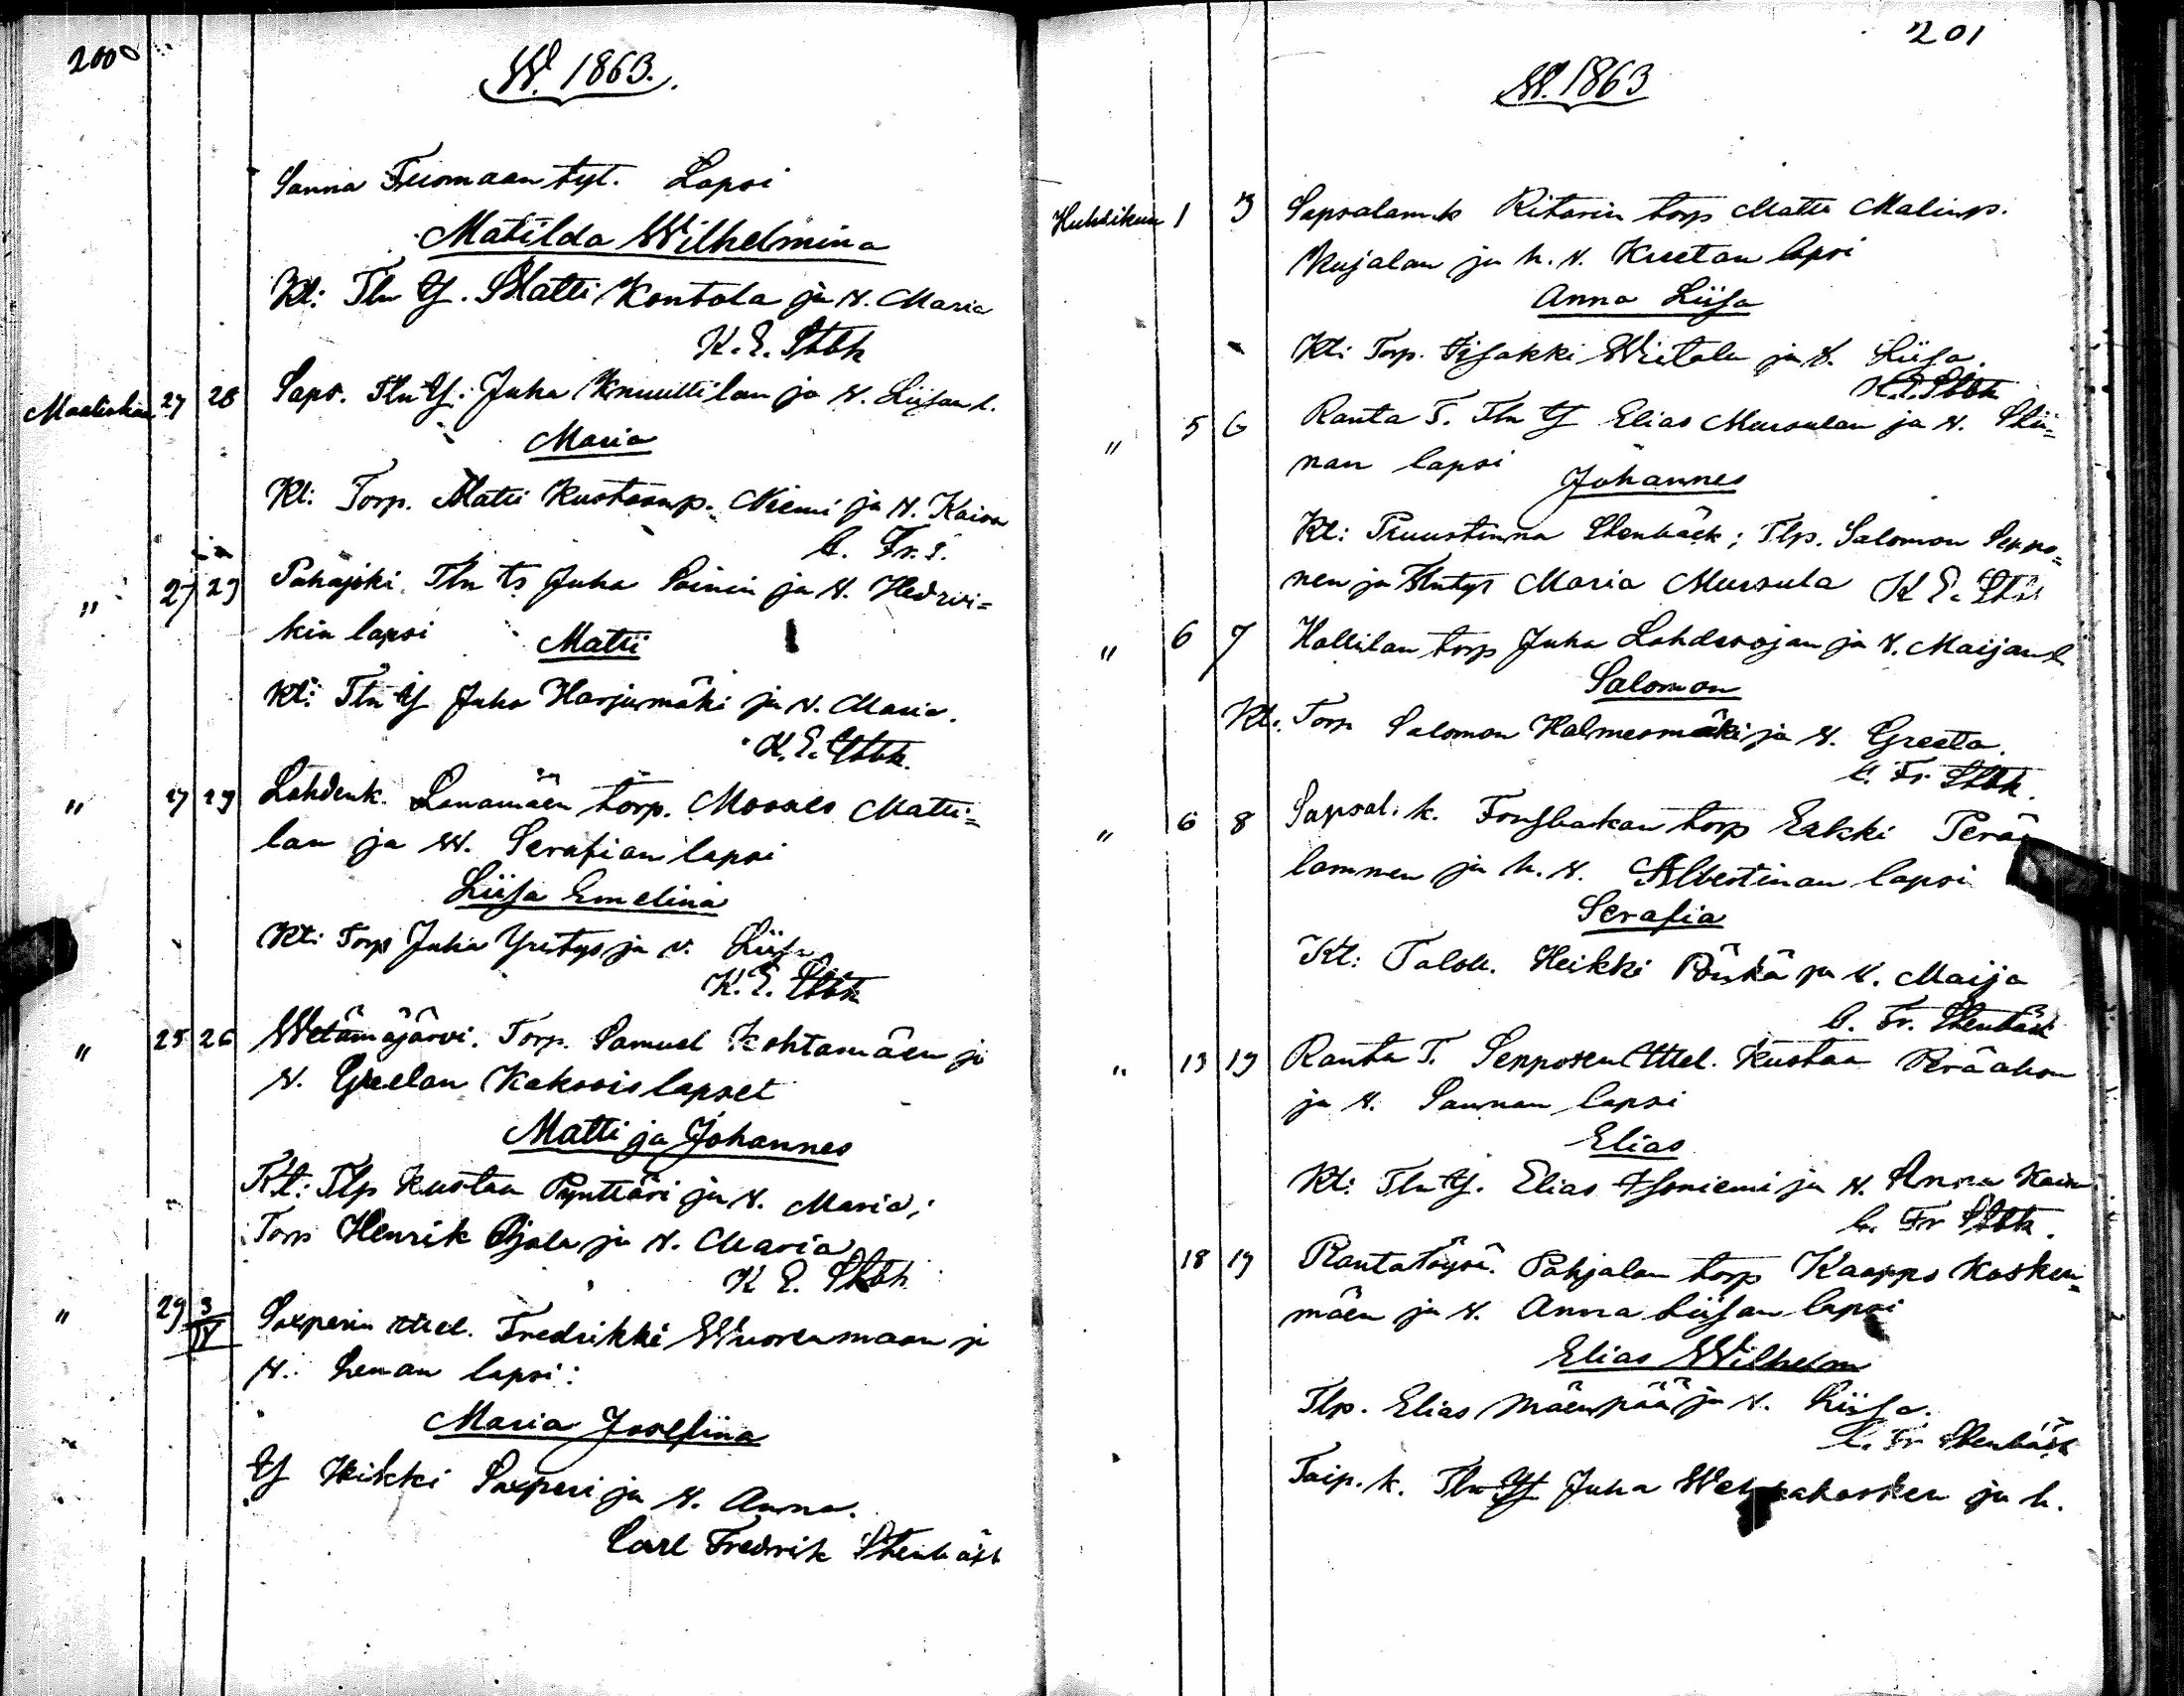 200
W. 1863.
Sanna Tuomaan tyt. Lapsi
Matilda Wilhelmina
Kt: Tln Matti Kontola ja N. Maria
K. E. Stbk
Maaliskuu 27 28 Saps. Tln Juha Knuuttilan ja N. Liisan l.
Maria
Kt: Torp. Matti Kustaanp. Niemi ja N. Kaisa
C. Fr. S.
" 27 29 Pahajoki. Tln ts Juha Soinin ja N. Hedwi=
kin lapsi Matti
Kt: Tln Juha Harjumäki ja N. Maria.
K. E. Stbk.
" 27 29 Lahdenk. torp. Mooses Matti=
lan ja W. Serafian lapsi
Liisa Emelina
Kt: Torp Juha Yritys ja v. Liisa
K. E. Stbk
" 25 26 Wetämäjärvi. Torp. Samuel Kohtamäen ja
N. Greetan Kaksoislapset
Matti ja Johannes
Kt: Tlp Kustaa Pynttäri ja N. Maria;
Torp Henrik Ojala ja N. Maria
K E. Stbk
" 29 3/IV Saxperin Fredrikki Wuorenmaan ja
N. Lenan lapsi:
Maria Josefiina
Heikki Saxperi ja N. Anna.
Carl Fredrik Stenbäck
201
W. 1863
Huhtikuu 1 3 Sapsalamk Ritarin torp Matti Malinp.
Kujalan ja h. N. Kreetan lapsi
Anna Liisa
Kt: Torp. Iisakki Wiitala ja N. Liisa.
K. E. Stbk
" 5 6 Ranta T. Tln Elias Mursulan ja N. Stii=
nan lapsi Johannes
Kt: Pruustinna Stenbäck; Tlp. Salomon Seppo=
nen ja Tlntyt Maria Mursula K E. Stbk
" 6 7 Hallilan torp Juha Lahdenojan ja N. Maijan l
Salomon
Kt: Torp Salomon Halmesmäki ja N. Greeta.
C. Fr. Stbk.
" 6 8 Sapsal. k. torp Erkki Perä
lammen ja h. N. Albertinan lapsi
Serafia
Kt: Talok. Heikki Pöyskä ja N. Maija
C. Fr. Stenbäck
" 13 19 Ranta T. Sepposen Kustaa Peräahon
ja N. Sannan lapsi
Elias
Kt: Tln Elias Isoniemi ja N. Anna Kaisa
C. Fr Stbk.
18 19 Rantatöysä. Pohjalan torp Kaappo Kosken=
mäen ja N. Anna Liisan lapsi
Elias Wilhelm
Tlp. Elias Mäenpää ja N. Liisa.
C. Fr Stenbäck
Taip. k. Tln Juha ja h.